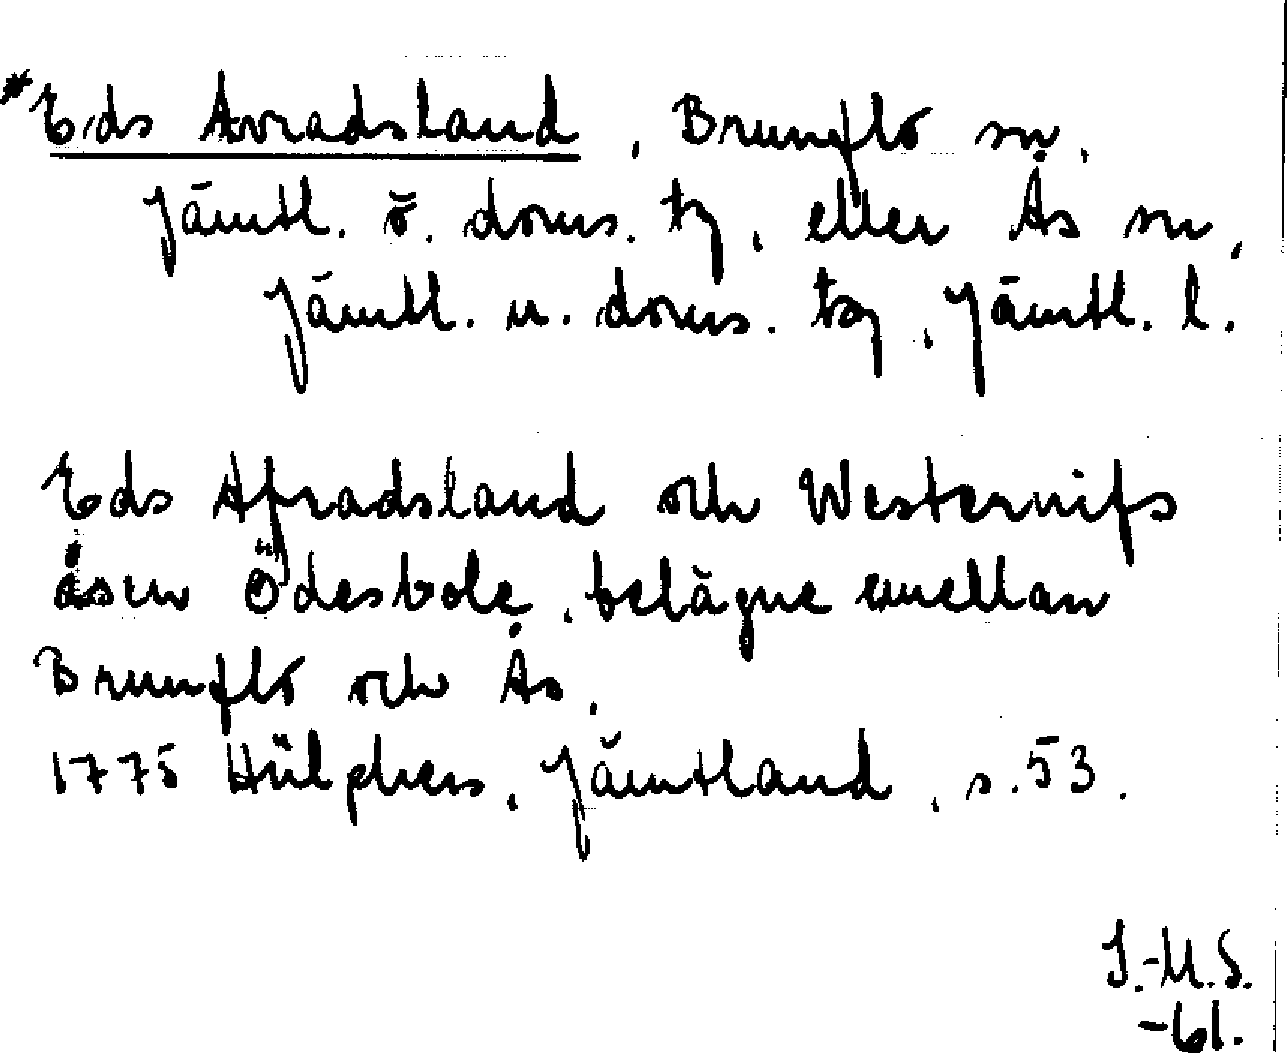 *Eds Avradsland, Brunflo sn,
Jämtl. ö. doms. tg, eller Ås sn,
Jämtl. n. doms. tg, Jämtl. l.
Eds Afradsland och Westernifs
åsen Ödesbole, belägne emellan
Brunflo och Ås.
1775 Hülphers, Jämtland, s. 53.
I.-M.S.
-61.